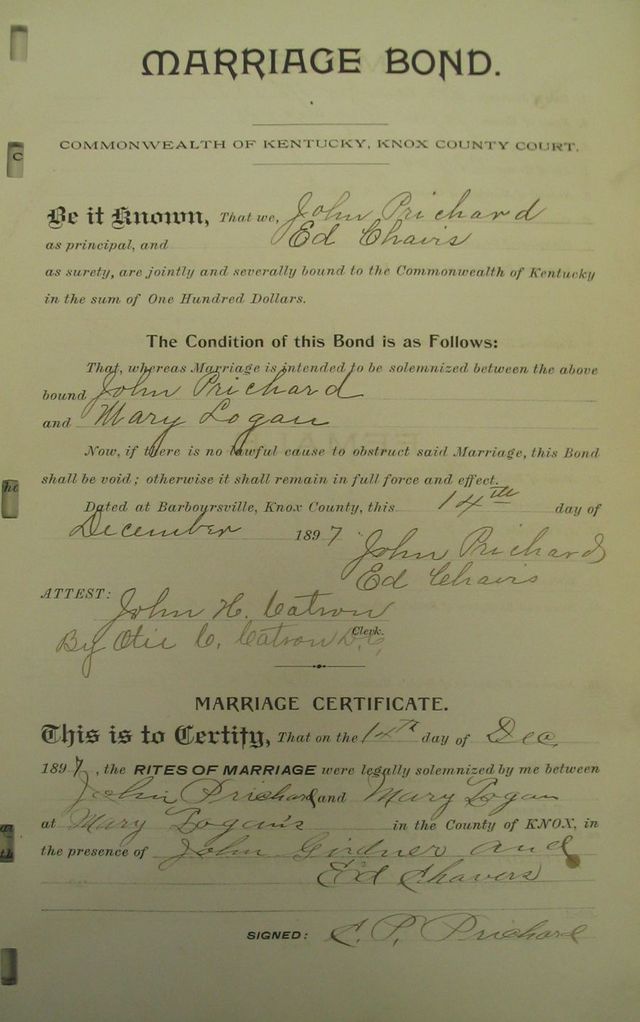 MARRIAGE BOND.
COMMONWEALTH OF KENTUCKY, KNOX COUNTY COURT.
Be it Known, That we, John Prichard
as principal, and Ed Chavis
as surety, are jointly and severally bound to the Commonwealth of Kentucky
in the sum of One Hundred Dollars.
The Condition of this Bond is as Follows:
That, whereas Marriage is intended to be solemnized between the above
bound John Prichard
and Mary Logan
Now, if there is no lawful cause to obstruct said Marriage, this Bond
shall be void; otherwise it shall remain in full force and effect.
Dated at Barboursville, Knox County, this 14th day of
December 1897
John Prichard
Ed Chavis
ATTEST: John H. Catron
Clerk.
By Otis C. Catron D.C.
MARRIAGE CERTIFICATE.
This is to Certify, That on the 14th day of Dec.
1897, the RITES OF MARRIAGE were legally solemnized by me between
John Prichard and Mary Logan
at Mary Logan's in the County of KNOX, in
the presence of John Girdner and
Ed Chavers
SIGNED: C. P. Prichard